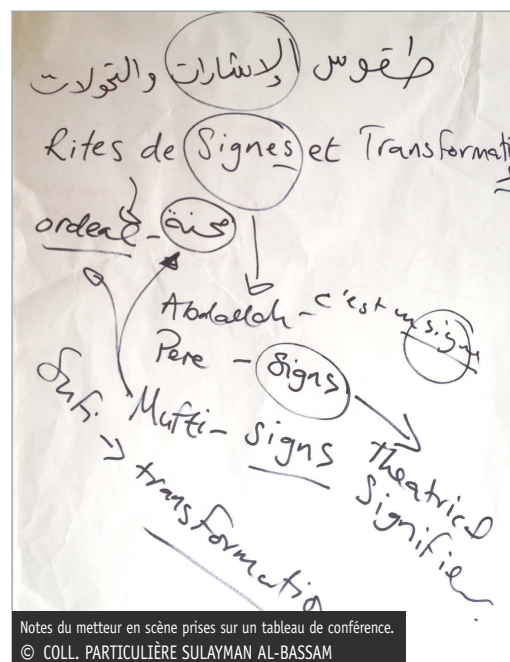 طقوس الإشارات والتحولات
Rites de Signes et Transformati
ordeal - محنة
Abdallah - c'est un signe
Père - Signs
Mufti - Signs
Theatrical
Signifier
Sufi → transformatio
Notes du metteur en scène prises sur un tableau de conférence.
© COLL. PARTICULIÈRE SULAYMAN AL-BASSAM